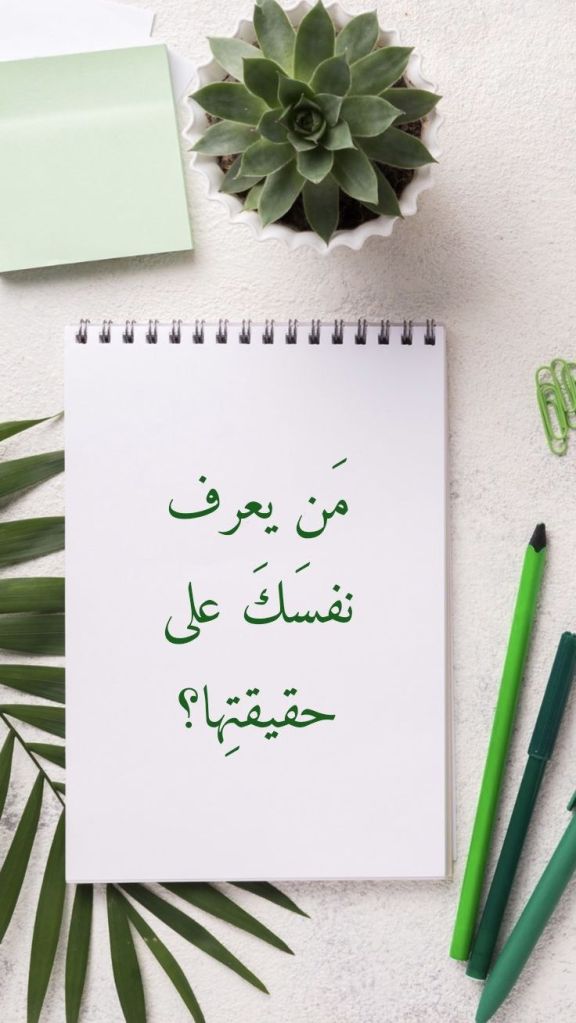 مَن يعرف
نفسَكَ على
حقيقتِها؟